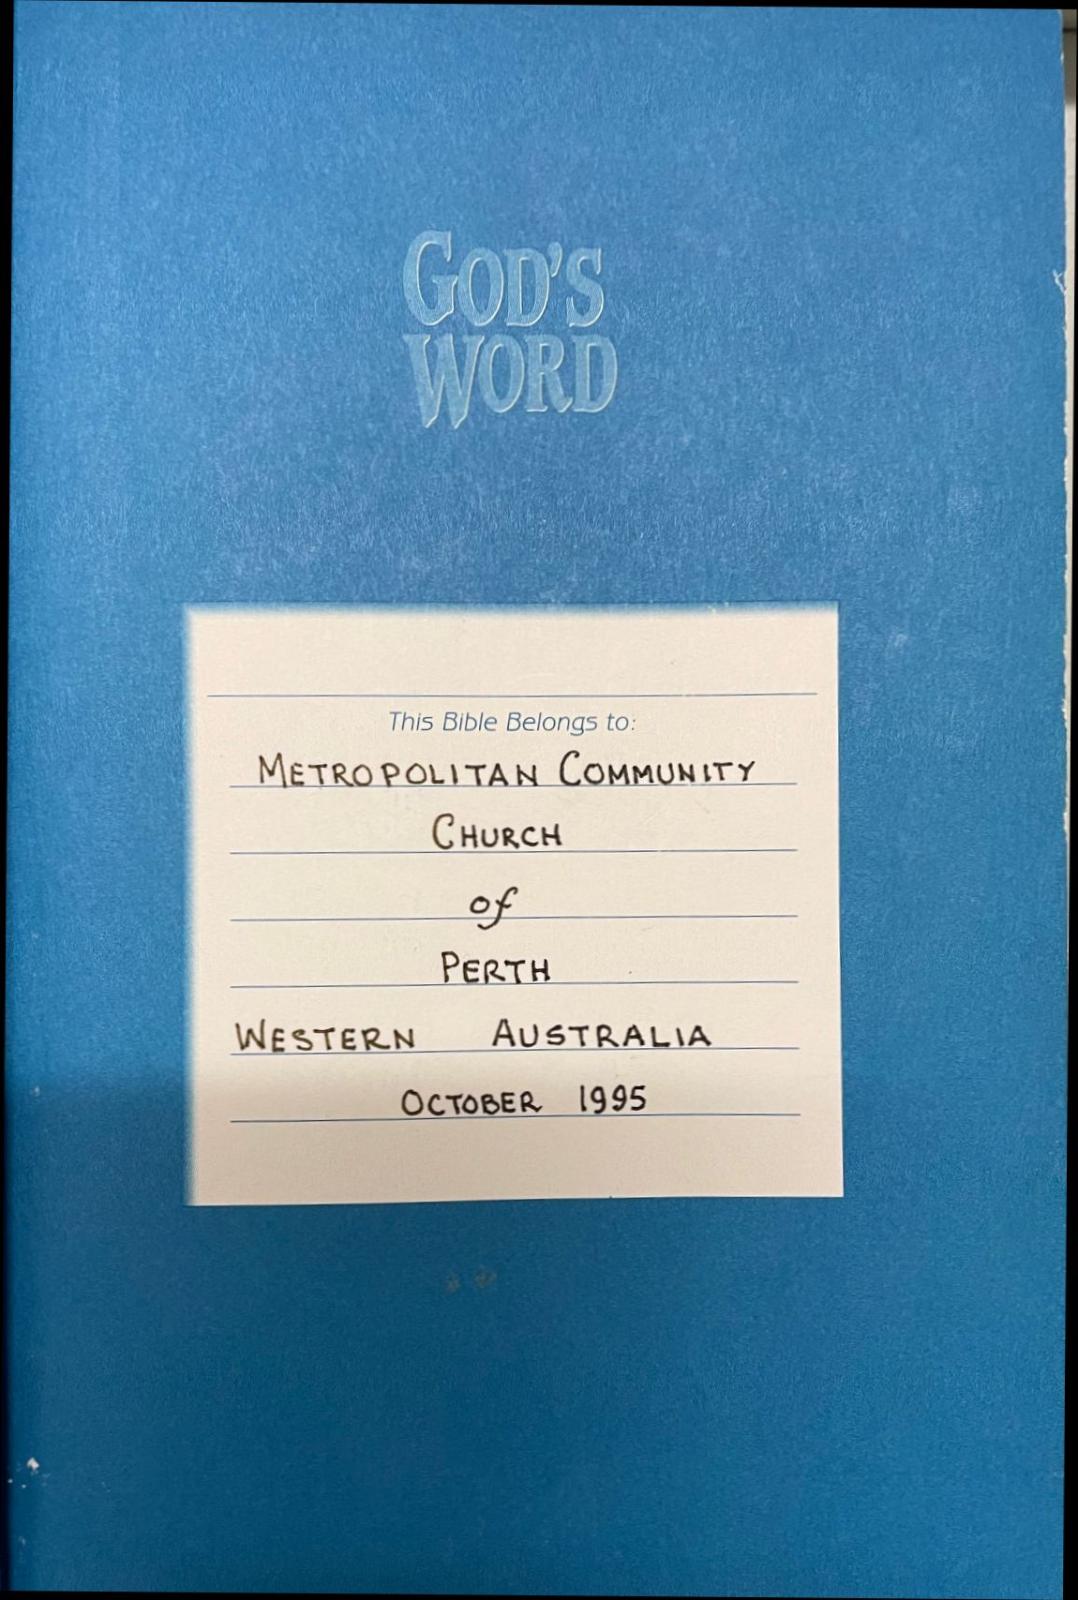 GOD'S
WORD
This Bible Belongs to:
METROPOLITAN COMMUNITY
CHURCH
of
PERTH
WESTERN AUSTRALIA
OCTOBER 1995